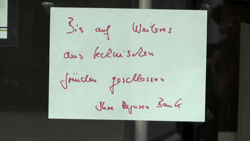 Bis auf Weiteres
aus technischen
Gründen geschlossen
Ihre Bank